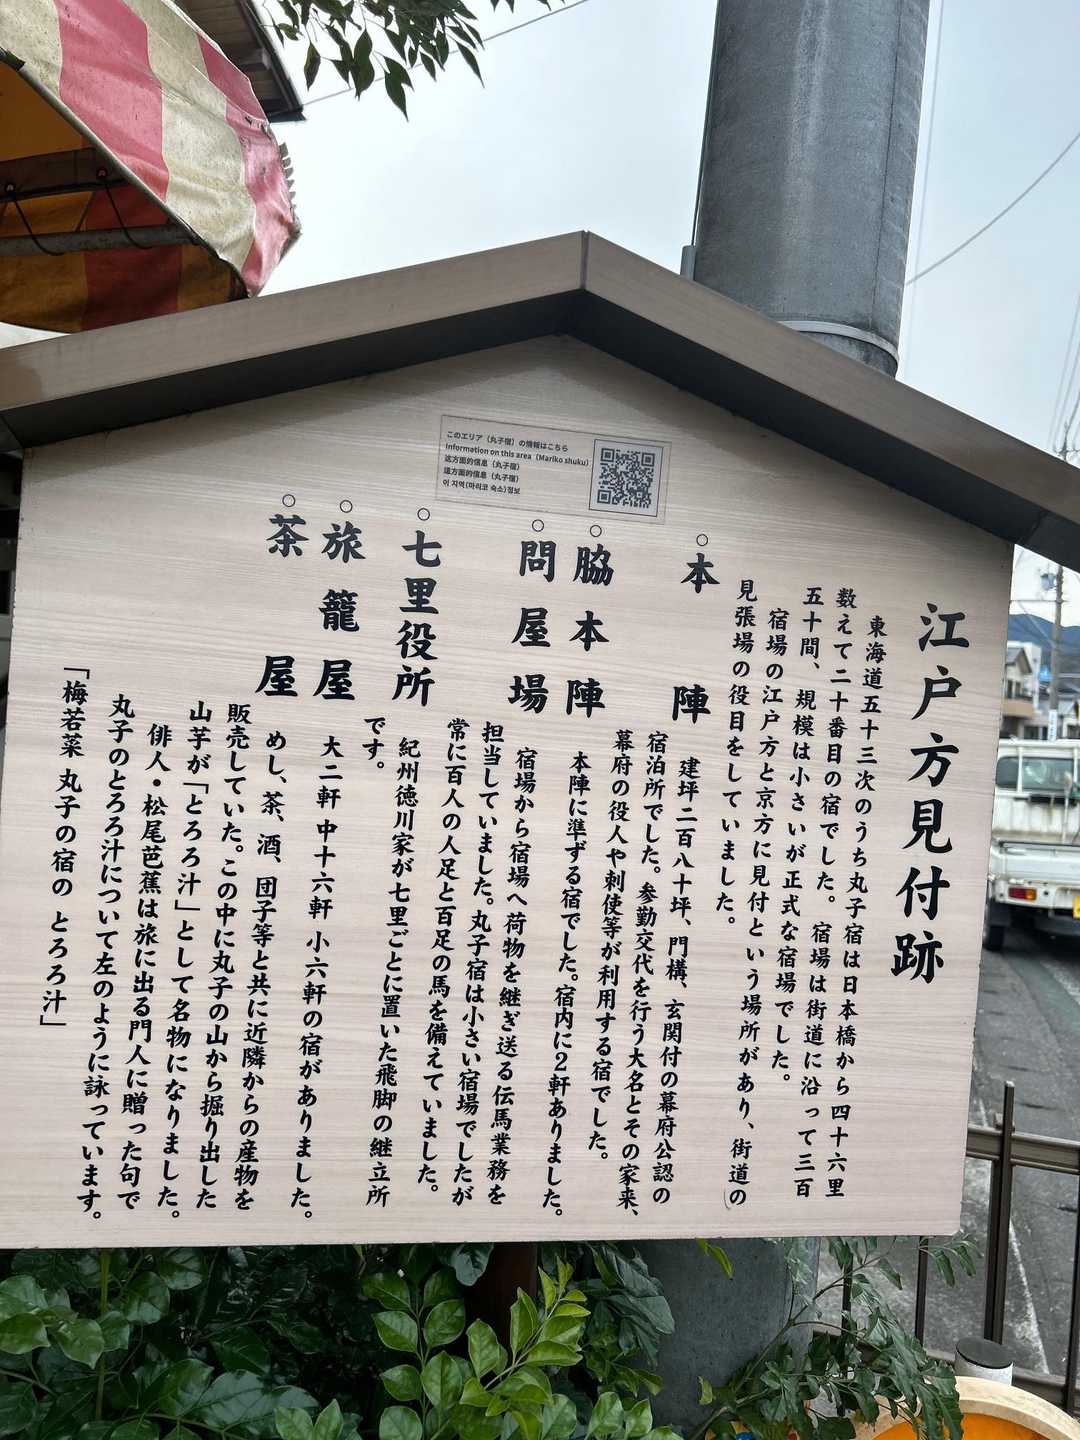 このエリア（丸子宿）の情報はこちら
Information on this area（Mariko shuku）
这方面的信息（丸子宿）
這方面的信息（丸子宿）
이 지역(마리코 숙소)정보
江戸方見付跡
東海道五十三次のうち丸子宿は日本橋から
数えて二十番目の宿でした。宿場は街道に沿って三百
五十間、規模は小さいが正式な宿場でした。
宿場の江戸方と京方に見付という場所があり、街道の
見張場の役目をしていました。
四十六里
○本陣
建坪二百八十坪、門構、玄関付の幕府公認の
宿泊所でした。参勤交代を行う大名とその家来、
幕府の役人や刺使等が利用する宿でした。
○脇本陣
本陣に準ずる宿でした。宿内に2軒ありました。
○問屋場
宿場から宿場へ荷物を継ぎ送る伝馬業務を
担当していました。丸子宿は小さい宿場でしたが
常に百人の人足と百足の馬を備えていました。
○七里役所
紀州徳川家が七里ごとに置いた飛脚の継立所
です。
○旅籠屋
大二軒 中十六軒 小六軒の宿がありました。
○茶屋
めし、茶、酒、団子等と共に近隣からの産物を
販売していた。この中に丸子の山から掘り出した
山芋が「とろろ汁」として名物になりました。
俳人・松尾芭蕉は旅に出る門人に贈った句で
丸子のとろろ汁について左のように詠っています。
「梅若菜 丸子の宿の とろろ汁」